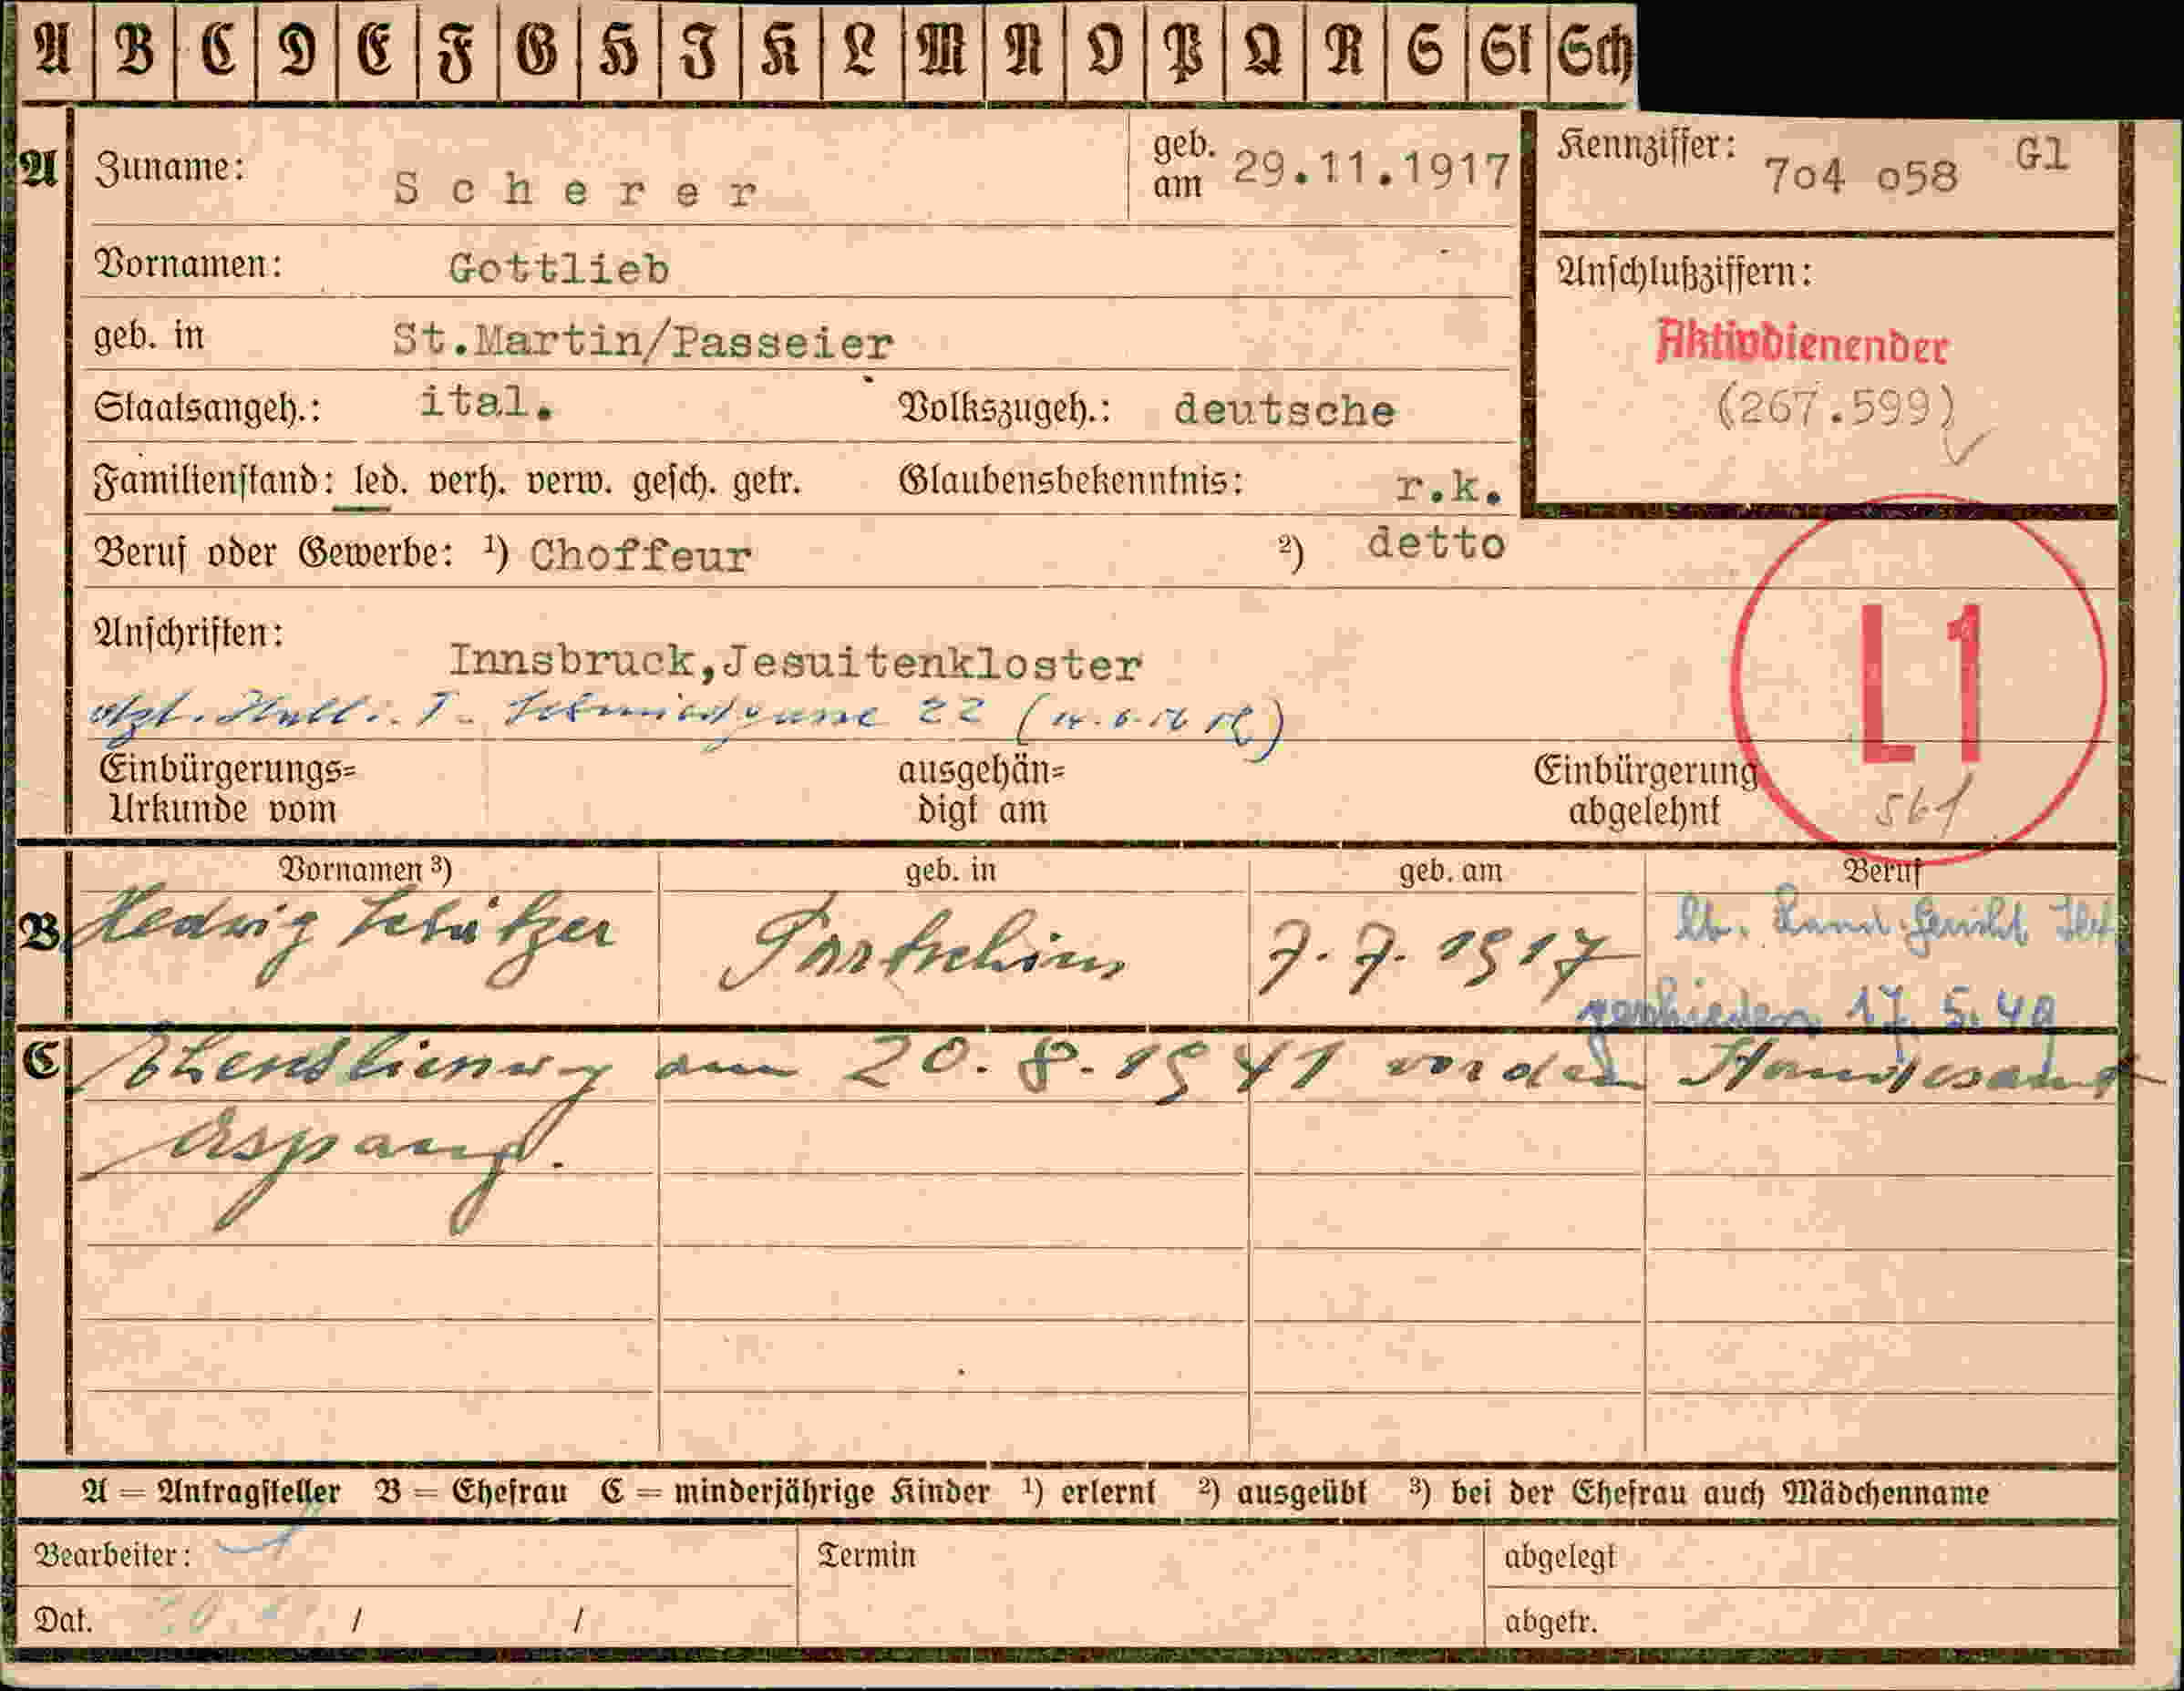 A B C D E F G H I K L M N O P Q R S St Sch
A Zuname: Scherer geb. am 29.11.1917 Kennziffer: 7o4 o58 Gl
Vornamen: Gottlieb
Anschlußziffern:
geb. in St.Martin/Passeier
Aktivdienender
Staatsangeh.: ital. Volkszugeh.: deutsche
(267.599)
Familienstand: led. verh. verw. gesch. getr. Glaubensbekenntnis: r.k.
Beruf oder Gewerbe: ¹) Choffeur ²) detto
Anschriften: Innsbruck,Jesuitenkloster
L1
Hall i. T. Schmiedgasse 22
Einbürgerungs=
Urkunde vom
ausgehän=
digt am
Einbürgerung
abgelehnt
561
Vornamen ³) geb. in geb. am Beruf
B Hedwig Partschins 7. 7. 1917
lt. Land. Gericht
geschieden 17. 5. 49
C am 20. 8. 1941 vor dem Standesamt
Aspang.
A = Antragsteller B = Ehefrau C = minderjährige Kinder ¹) erlernt ²) ausgeübt ³) bei der Ehefrau auch Mädchenname
Bearbeiter: Termin abgelegt
Dat. / / abgetr.